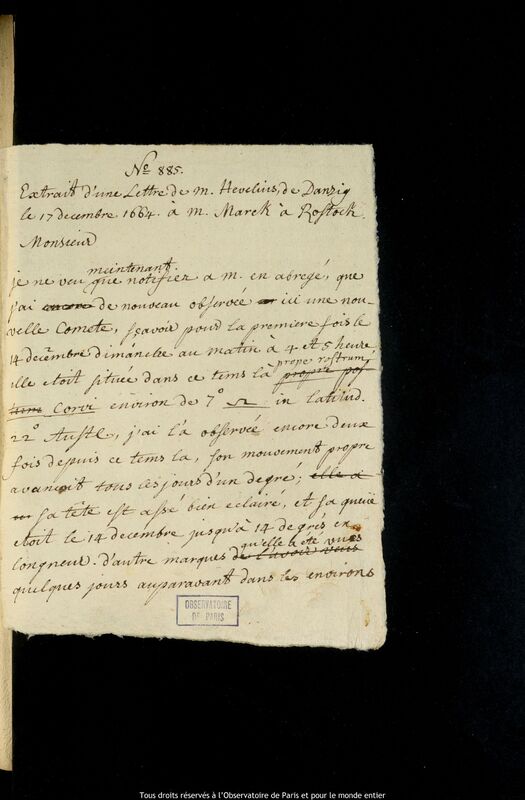 No 885.
Extrait d'une Lettre de m. Hevelius, de Danzig
le 17 decembre 1664. à m. Marck à Rostock.
Monsieur
maintenant.
je ne veu que notifier a m. en abregé, que
j'ai encore de nouveau observée ici une nou-
velle Comete, sçavoir pour la premiere fois le
14 decembre dimánche au matin à 4 et 5 heure
prope rostrum
elle etoit située dans ce tems la propre pos
Corvi environ de 7° ♎ in latitud.
22° Austl., j'ai l'a observée encore deux
fois depuis ce tems la, son mouvement propre
avançoit tous les jours d'un degré; elle a
sa tête est assé bien eclairé, et sa queüe
etoit le 14 decembre jusqu'à 14 degrés en
qu'elle a été vues
longueur. d'autre marques de l'avoir vues
quelques jours auparavant dans les environs
OBSERVATOIRE
DE PARIS
Tous droits réservés à l'Observatoire de Paris et pour le monde entier